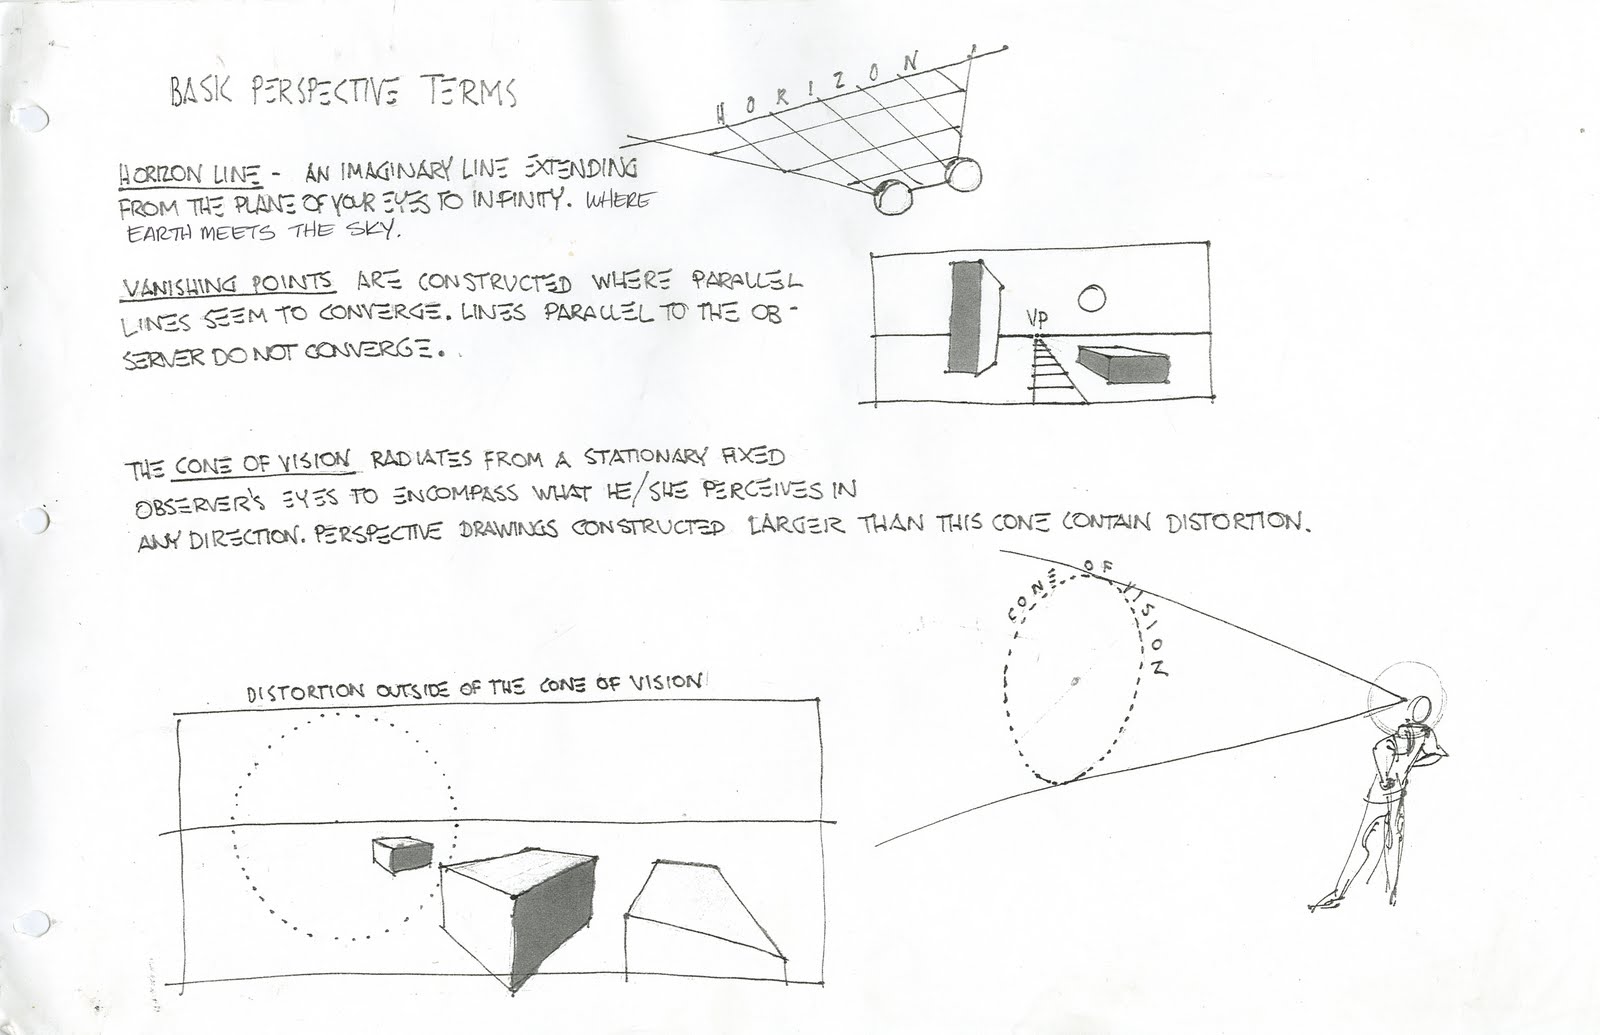 BASIC PERSPECTIVE TERMS
HORIZON
HORIZON LINE - AN IMAGINARY LINE EXTENDING
FROM THE PLANE OF YOUR EYES TO INFINITY. WHERE
EARTH MEETS THE SKY.
VANISHING POINTS ARE CONSTRUCTED WHERE PARALLEL
LINES SEEM TO CONVERGE. LINES PARALLEL TO THE OB-
SERVER DO NOT CONVERGE.
VP
THE CONE OF VISION RADIATES FROM A STATIONARY FIXED
OBSERVER'S EYES TO ENCOMPASS WHAT HE/SHE PERCEIVES IN
ANY DIRECTION. PERSPECTIVE DRAWINGS CONSTRUCTED LARGER THAN THIS CONE CONTAIN DISTORTION.
CONE OF VISION
DISTORTION OUTSIDE OF THE CONE OF VISION